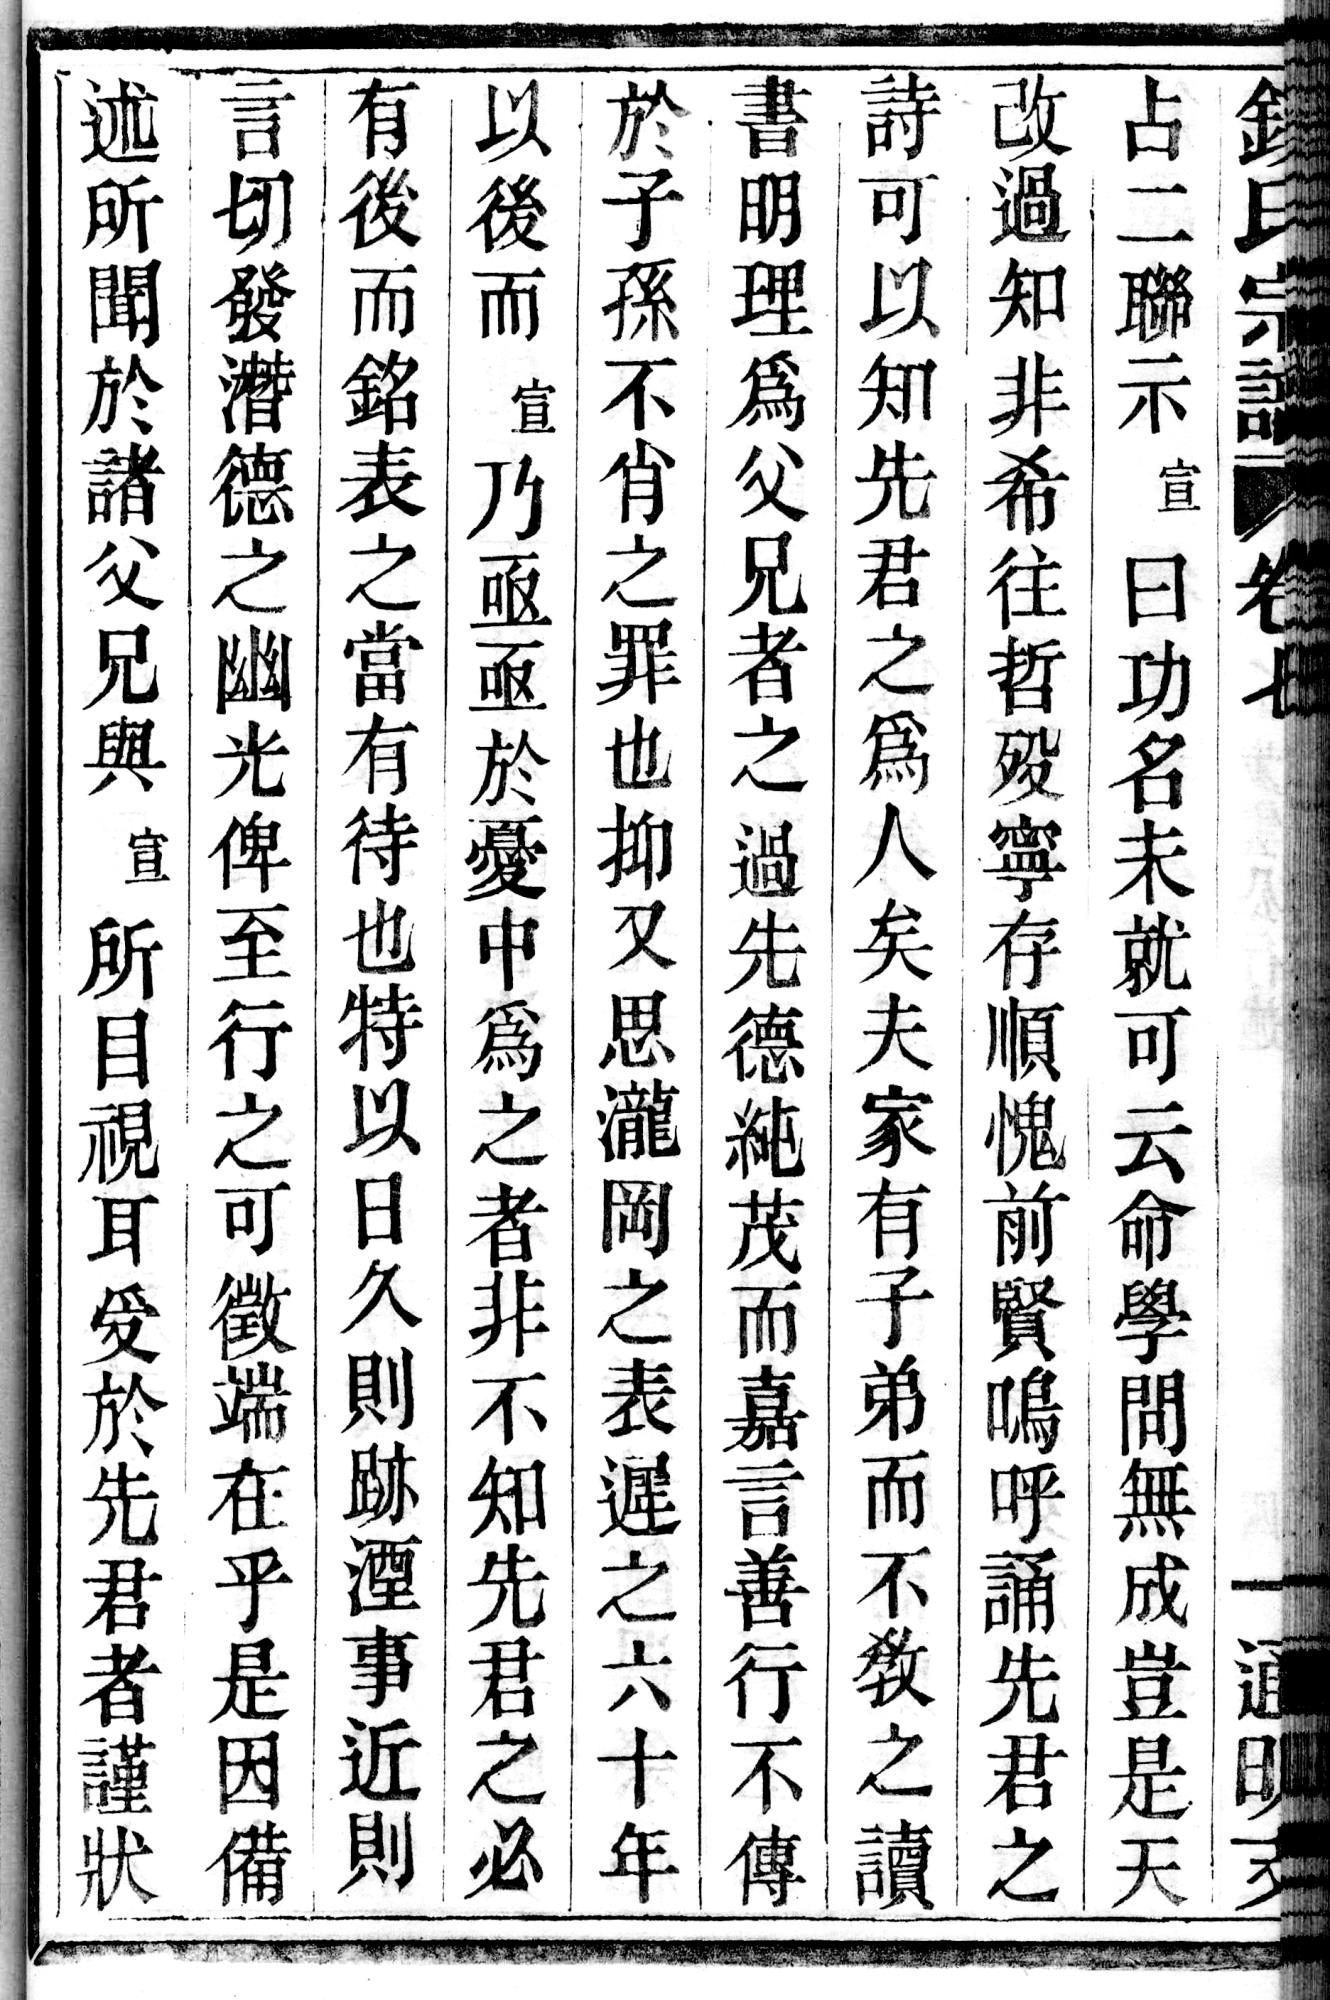 氏宗譜 卷七 一 通明
占二聯示宣曰功名未就可云命學問無成豈是天
改過知非希往哲歿寧存順愧前賢嗚呼誦先君之
詩可以知先君之爲人矣夫家有子弟而不敎之讀
書明理爲父兄者之過先德純茂而嘉言善行不傳
於子孫不肖之罪也抑又思瀧岡之表遲之六十年
以後而宣乃亟亟於憂中爲之者非不知先君之必
有後而銘表之當有待也特以日久則跡湮事近則
言切發潛德之幽光俾至行之可徵端在乎是因備
述所聞於諸父兄與宣所目視耳受於先君者謹狀